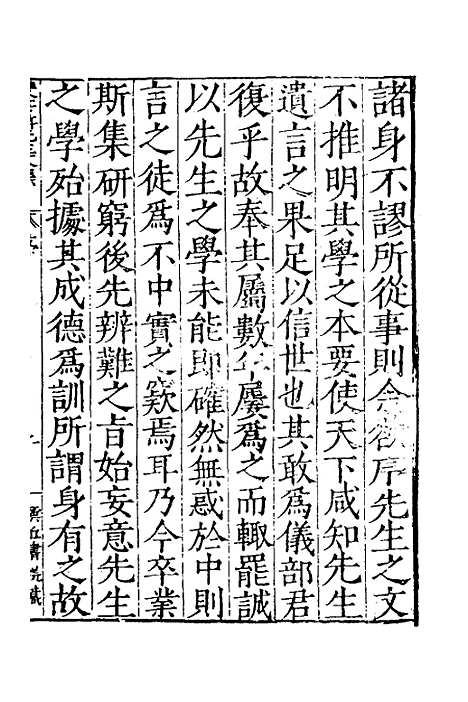 諸身不謬所從事則今欲序先生之文
不推明其學之本要使天下咸知先生
遺言之果足以信世也其敢為儀部君
復乎故奉其屬數年屢為之而輙罷誠
以先生之學未能即確然無惑於中則
言之徒為不中實之窾焉耳乃今卒業
斯集研窮後先辨難之㫖始妄意先生
之學殆據其成德為訓所謂身有之故